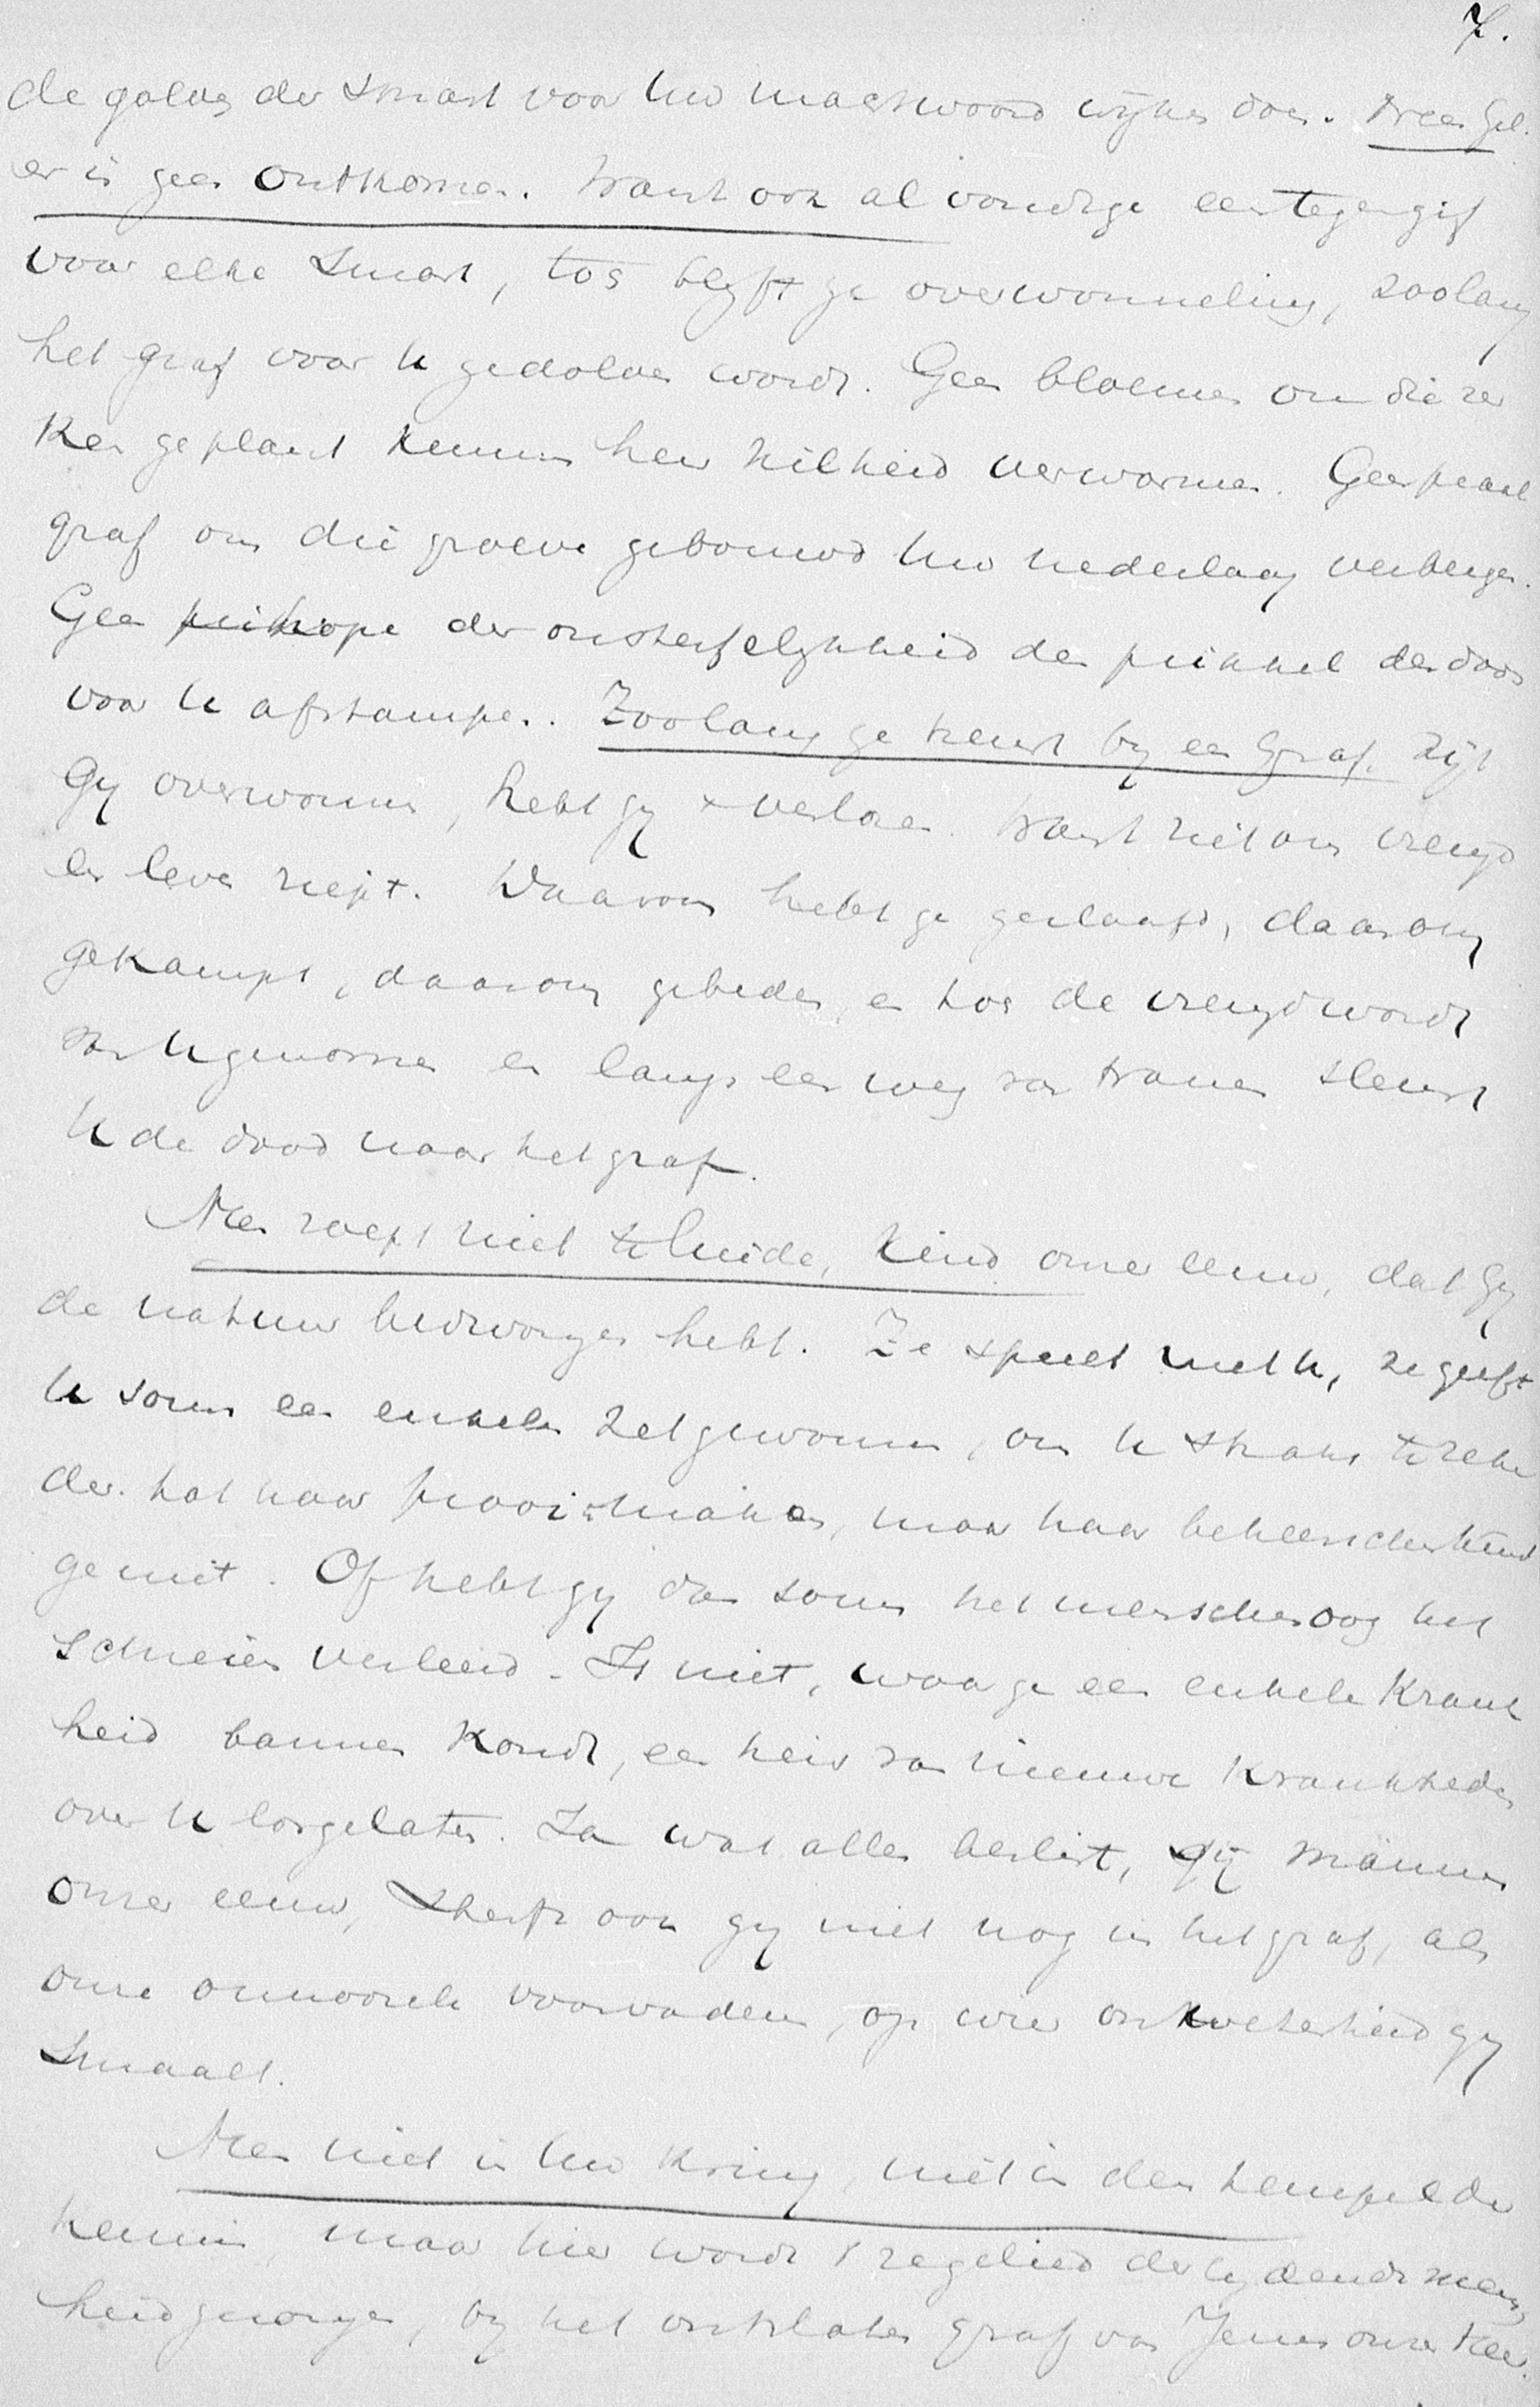 7.
de golven der smart voor Uw machtwoord wijken doen. Neen Gel.
er is geen ontkomen. Want ook al vondt ge een tegengif
voor elke smart, toch blijft ge overwonneling, zoolang
het graf voor U gedolven wordt. Geen bloemen om die zer
ken geplant kunnen hun kilheid verwarmen. Geen praal
graf om die groeve gebouwd Uw nederlaag verbergen.
Geen hope der onsterfelijkheid den prikkel des doods
voor U afstompen. Zoolang ge treurt bij een graf, zijt
Gy overwonnen, hebt gy verloren. Want niet om vreugd
en leven riept. Daarom hebt ge geslaafd, daarom
gekampt, daarom gebeden, en toch de vreugd wordt
van U genomen en langs een weg van tranen sleurt
U de dood naar het graf.
Neen roept niet te luide, kind onzer eeuw, dat Gy
de natuur bedwongen hebt. Ze speelt met U, ze geeft
U soms een enkelen zet gewonnen, om U straks te zeke
der tot haar prooi te maken, maar haar beheerscher kend
ge niet. Of hebt gy dan soms het menschenoog het
schreien verleerd. Is niet, waar ge een enkele krank
heid bannen kondt, een heir van nieuwe krankheden
over U losgelaten. Ja wat alles beslist, gij mannen
onzer eeuw, sterft ook gy niet nog in het graf, als
onze onnoozele voorvaderen, op wier onwetenheid gy
smaalt.
Neen niet in Uw kring, niet in den tempel der
kennis, maar hier wordt 't zegelied der lydende mensch
heid gezongen, by het ontsloten graf van Jezus onzen Heer.